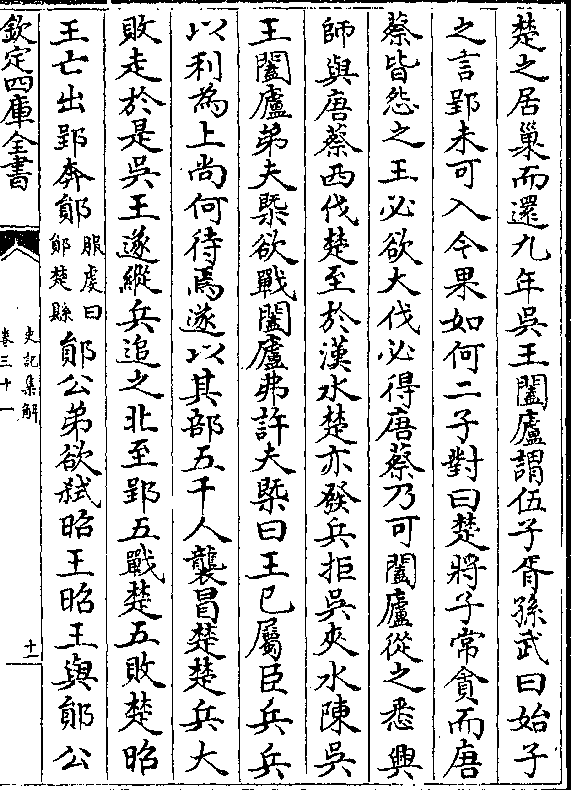 楚之居巢而還九年吳王闔廬謂伍子胥孫武曰始子
之言郢未可入今果如何二子對曰楚將子常貪而唐
蔡皆怨之王必欲大伐必得唐蔡乃可闔廬從之悉興
師與唐蔡西伐楚至於漢水楚亦發兵拒吳夾水陳吳
王闔廬弟夫槩欲戰闔廬弗許夫槩曰王已屬臣兵兵
以利為上尚何待焉遂以其部五千人襲冒楚楚兵大
敗走於是吳王遂縱兵追之比至郢五戰楚五敗楚昭
王亡出郢奔鄖服虔曰鄖楚縣鄖公弟欲弑昭王昭王與鄖公
欽定四庫全書
史記集解
卷三十一
十一